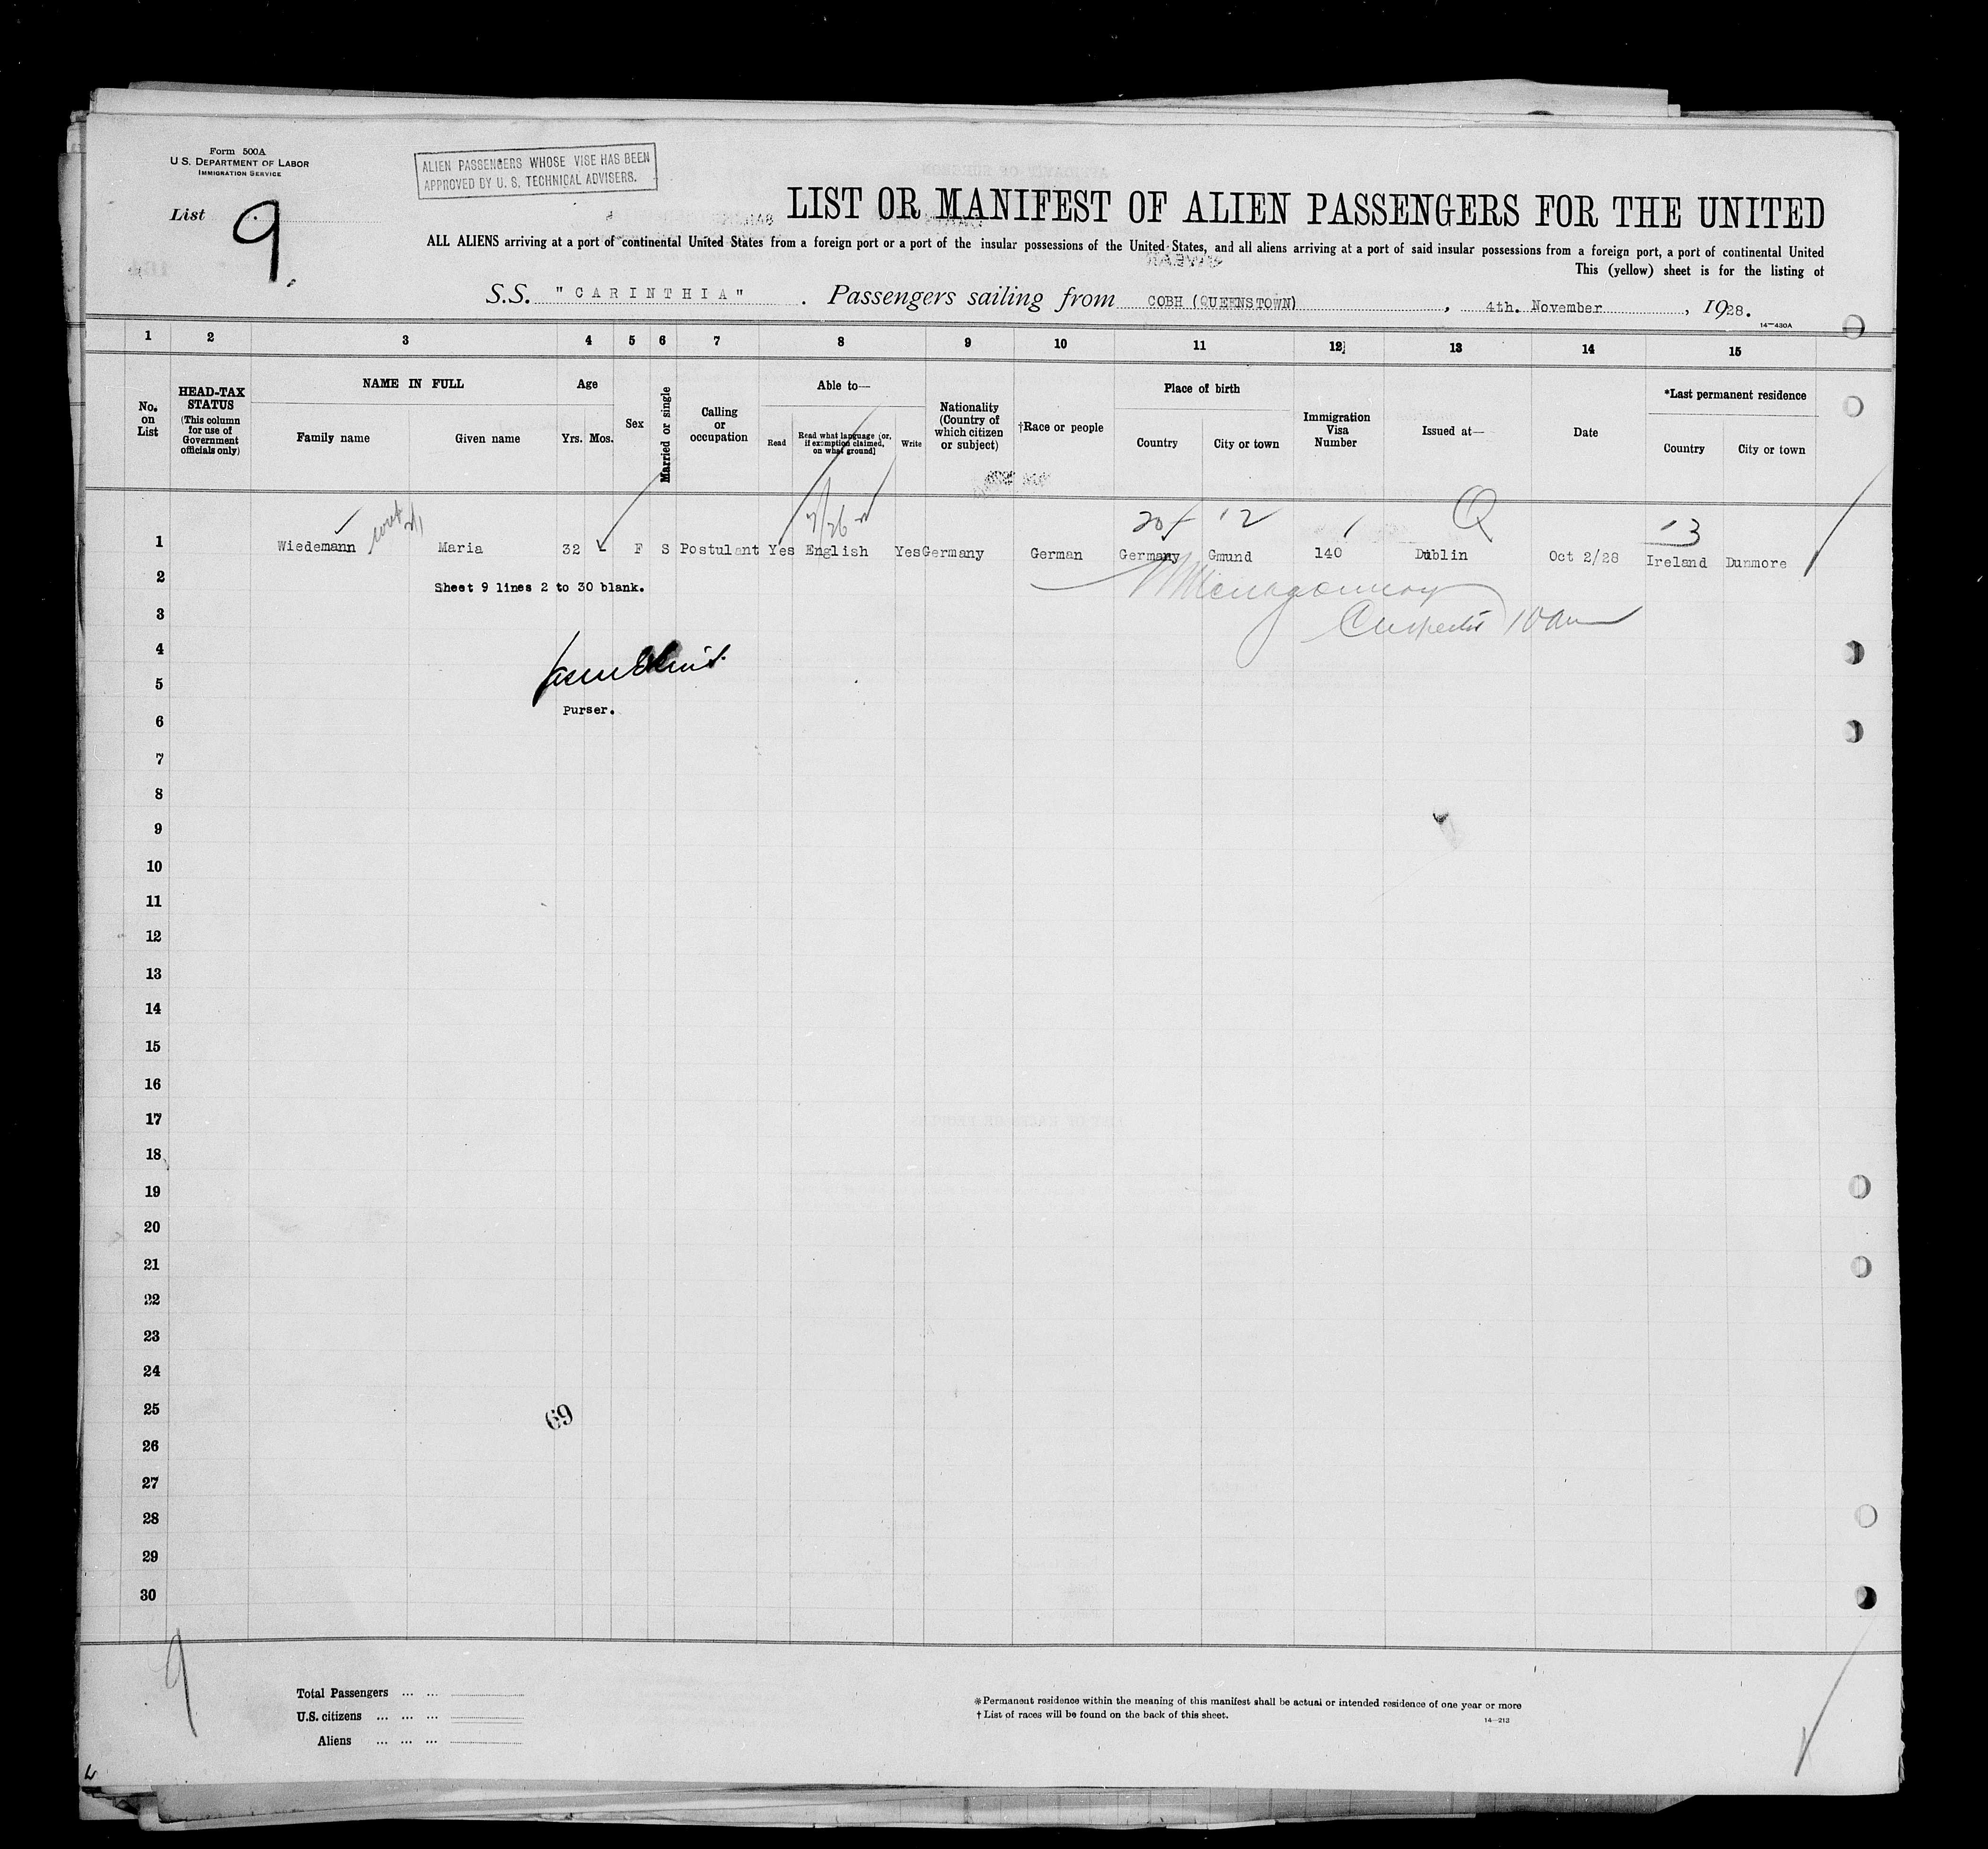 Form 500A
U.S. DEPARTMENT OF LABOR
IMMIGRATION SERVICE
ALIEN PASSENGERS WHOSE VISE HAS BEEN
APPROVED BY U. S. TECHNICAL ADVISERS.
List 9.
LIST OR MANIFEST OF ALIEN PASSENGERS FOR THE UNITED
ALL ALIENS arriving at a port of continental United States from a foreign port or a port of the insular possessions of the United States, and all aliens arriving at a port of said insular possessions from a foreign port, a port of continental United
This (yellow) sheet is for the listing of
S.S. "CARINTHIA". Passengers sailing from COBH (QUEENSTOWN), 4th. November, 1928.
14—430A
1 2 3 4 5 6 7 8 9 10 11 12 13 14 15
No. on List
HEAD-TAX STATUS (This column for use of Government officials only)
NAME IN FULL
Family name Given name
Age
Yrs. Mos.
Sex
Married or single
Calling or occupation
Able to—
Read Read what language [or, if exemption claimed, on what ground] Write
Nationality (Country of which citizen or subject)
†Race or people
Place of birth
Country City or town
Immigration Visa Number
Issued at—
Date
*Last permanent residence
Country City or town
20 12 Q 13
1 Wiedemann Maria 32 F S Postulant Yes English Yes Germany German Germany Gmund 140 Dublin Oct 2/28 Ireland Dunmore
2 Sheet 9 lines 2 to 30 blank.
Montgomery
3
Inspector 10 am
4
5
6 Purser.
7
8
9
10
11
12
13
14
15
16
17
18
19
20
21
22
23
24
25
69
26
27
28
29
30
9
Total Passengers ... ...
U.S. citizens ... ... ...
Aliens ... ... ...
*Permanent residence within the meaning of this manifest shall be actual or intended residence of one year or more
†List of races will be found on the back of this sheet.
14—212